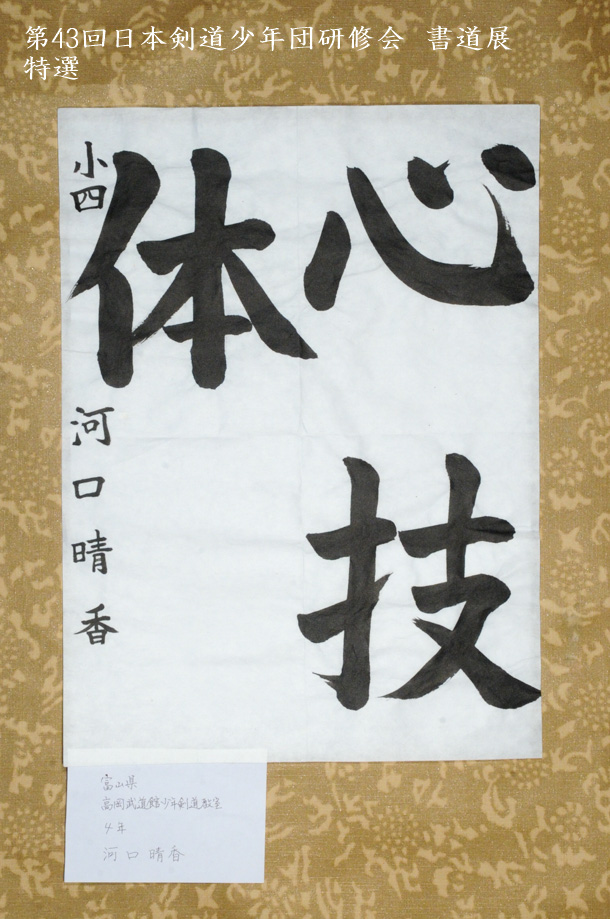 第43回日本剣道少年団研修会 書道展
特選
心技
体
小四 河口晴香
富山県
高岡武道館少年剣道教室
4年
河口晴香